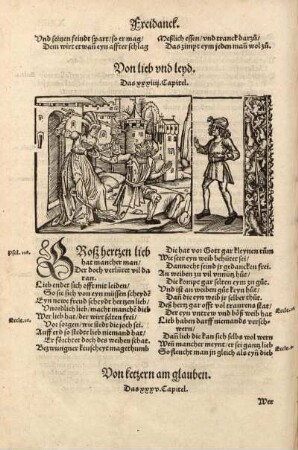 Freidanck.
Vnd seinen feindt spart/ so er mag/
Dem wirt etwañ eyn affter schlag
Meßlich essen/ vnd tranck darzů/
Das zimpt eym jeden mañ wol zů.
Von lieb vnd leyd.
Das xxxiiij. Capitel.
GRoß hertzen lieb
hat mancher man/
Der doch verleürt vil da
ran.
Lieb ender sich offt mit leiden/
So sie sich von eyn müssen scheydē
Eyn newe freud scheydt hertzen leid/
Vnendlich lieb/ macht manchē dieb
Wer lieb hat/ der wirt selten frei/
Vor sorgen/ wie stedt die joch sei.
Auff erd so stedt lieb niemand hat/
Er förchtet doch des weiben schat.
Bezwungner keuscheyt magetthumb
Die hat vor Gott gar kleynen rům
Wie seer eym weib behütet sei/
Dannocht seind jr gedancken frei.
An weiben zu vil vnnütz hůt/
Die kompt gar selten eym zu gůt.
Vnd ist an weiben gůt keyn hůt/
Dañ die eyn weib jr selber thůt.
Deß hertz gar offt vol traurens stat/
Der eyn vntrew vnd böß weib hat
Lieb haben darff niemands verschwern/
Dañ lieb die kan sich selbs wol wern
Weñ mancher meynt/ er sei gantz lieb
So fleucht man jn gleich als eyn dieb
Von ketzern am glauben.
Das xxxv. Capitel.
Wer